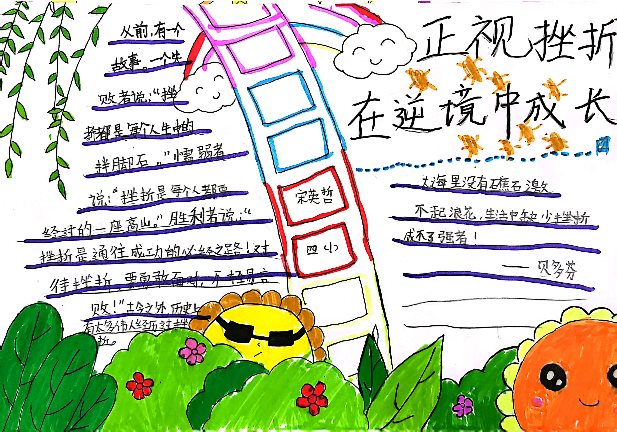 正视挫折
在逆境中成长
从前,有一个
故事。一个失
败者说:“挫
折都是每个人生中的
绊脚石。”懦弱者
说:“挫折是每个人都要
经过的一座高山。”胜利者说:“
挫折是通往成功的必经之路!对
待挫折,要勇敢面对,不轻易言
败!”古今中外,历史上
有太多伟人经历过挫
折。
宋英哲
四小
大海里没有礁石激
不起浪花,生活中缺少挫折
成不了强者!
——贝多芬